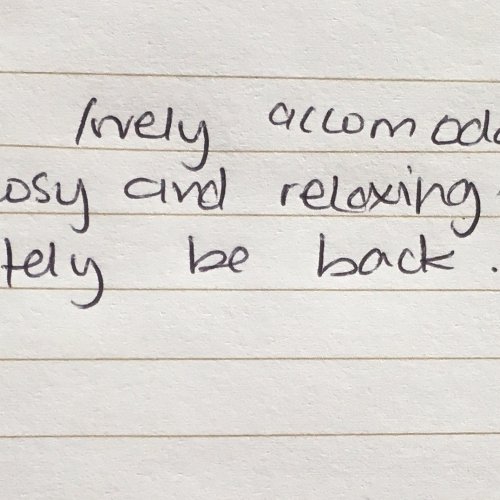 lovely accomoda
osy and relaxing
tely be back.